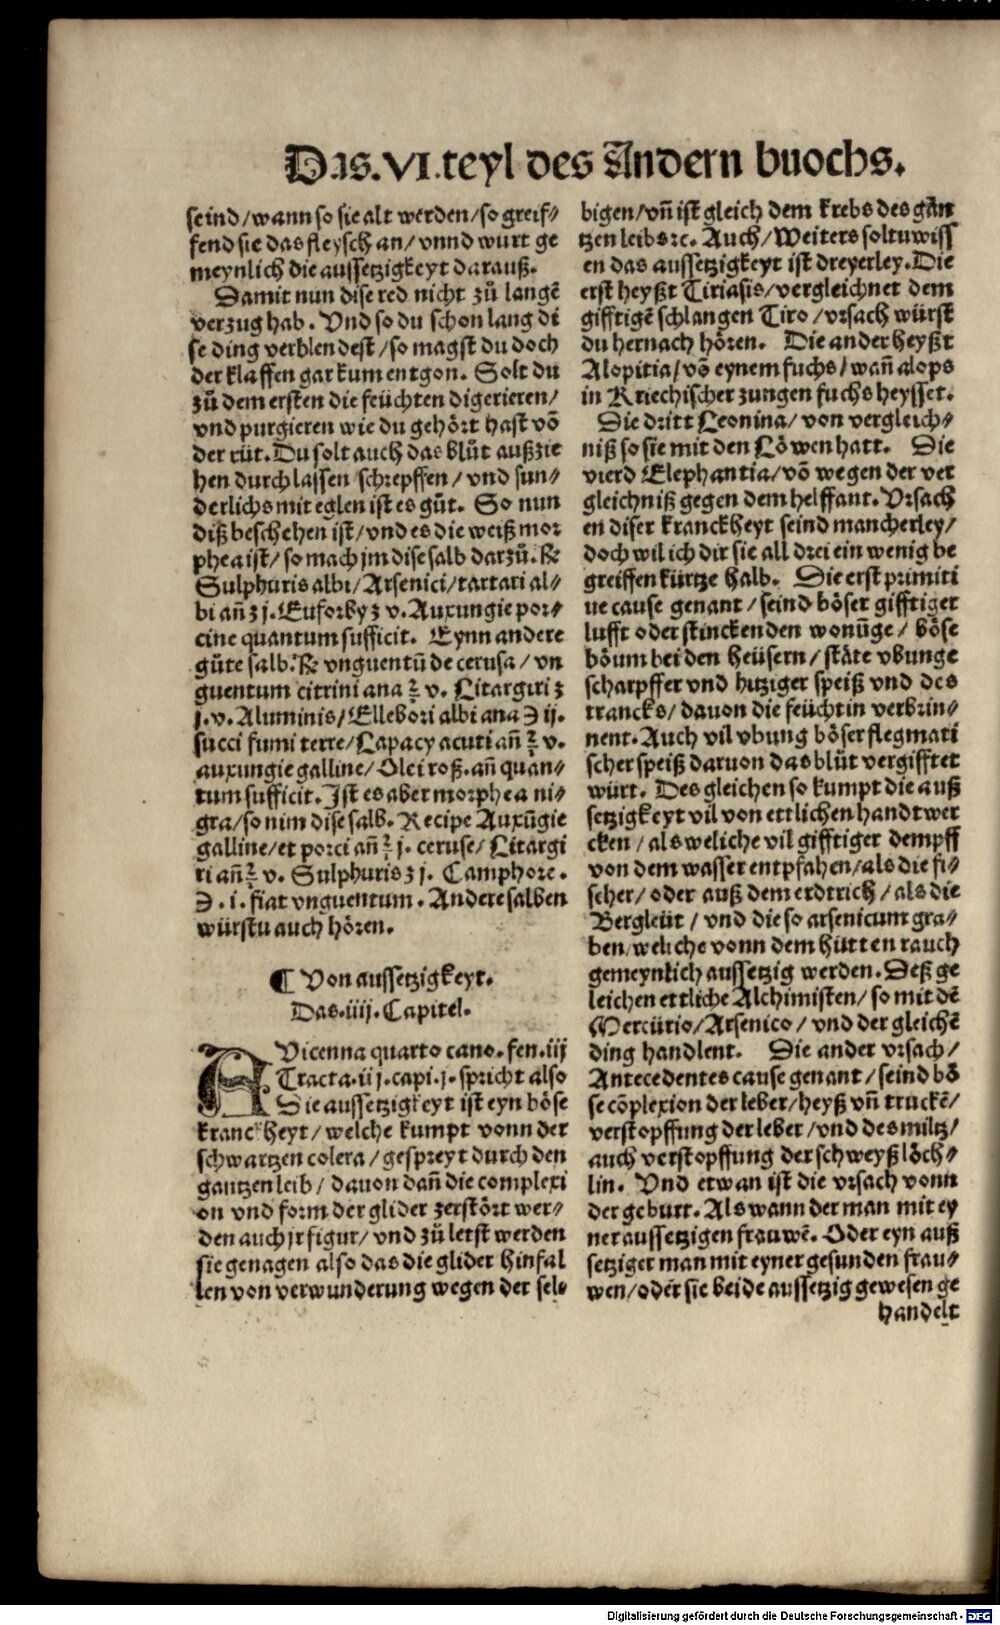 Das.VI.teyl des Andern buochs.
seind/wann so sie alt werden/so greif⸗
fend sie das fleysch an/vnnd wurt ge
meynlich die aussetzigkeyt darauß.
Damit nun dise red nicht zů langē
verzug hab. Vnd so du schon lang di
se ding verblendest/so magst du doch
der klaffen gar kum entgon. Solt du
zů dem ersten die feüchten digerieren/
vnd purgieren wie du gehört hast vō
der rüt. Du solt auch das blůt außzie
hen durch lassen/schrepffen/vnd sun⸗
derlichs mit eglen ist es gůt. So nun
diß beschehen ist/vnd es die weiß mor
phea ist/so mach jm dise salb darzů.℞
Sulphuris albi/Arsenici/tartari al⸗
bi añ ʒ j. Euforby ʒ v. Auxungie por⸗
cine quantum sufficit. Eynn andere
gůte salb.℞ vnguentū de cerusa/vn
guentum citrini ana ℥ v. Litargiri ʒ
j.v. Aluminis/Ellebori albi ana ℈ ij.
succi fumi terre/Lapacy acuti añ ℥ v.
auxungie galline/Olei roß. añ quan⸗
tum sufficit. Ist es aber morphea ni⸗
gra/so nim dise salb. Recipe Auxūgie
galline/et porci añ ℥ j. ceruse/Litargi
ri añ ℥ v. Sulphuris ʒ j. Camphore.
℈.i. fiat vnguentum. Andere salben
würstu auch hören.
¶ Von aussetzigkeyt.
Das.iiij.Capitel.
AVicenna quarto cano.fen.iij
Tracta.iij.capi.j.spricht also
Die aussetzigkeyt ist eyn böse
kranckheyt/welche kumpt vonn der
schwartzen colera/gespreyt durch den
gantzen leib/dauon dañ die complexi
on vnd form der glider zerstört wer⸗
den auch jr figur/vnd zů letst werden
sie genagen also das die glider hinfal
len von verwunderung wegen der sel⸗
bigen/vñ ist gleich dem krebs des gān
tzen leibs ꝛc. Auch/Weiters soltu wiss
en das aussetzigkeyt ist dreyerley.Die
erst heyßt Tiriasis/vergleichnet dem
gifftigē schlangen Tiro/vrsach würst
du hernach hören. Die ander heyßt
Alopitia/vō eynem fuchs/wañ alops
in Kriechischer zungen fuchs heysset.
Die dritt Leonina/von vergleich⸗
niß so sie mit den Löwen hatt. Die
vierd Elephantia/vō wegen der ver
gleichniß gegen dem helffant. Vrsach
en diser kranckheyt seind mancherley/
doch wil ich dir sie all drei ein wenig be
greiffen kürtze halb. Die erst primiti
ue cause genant/seind böser gifftiger
lufft oder stinckenden wonūge/böse
böum bei den heüsern/stäte vbunge
scharpffer vnd hitziger speiß vnd des
trancks/dauon die feücht in verbrin⸗
nent. Auch vil vbung böser flegmati
scher speiß daruon das blůt vergifftet
würt. Des gleichen so kumpt die auß
setzigkeyt vil von ettlichen handtwer
cken/als weliche vil gifftiger dempff
von dem wasser entpfahen/als die fi⸗
scher/oder auß dem erdtrich/als die
Bergleüt/vnd die so arsenicum gra⸗
ben/weliche vonn dem hütten rauch
gemeynlich aussetzig werden. Deß ge
leichen ettliche Alchimisten/so mit dē
Mercürio/Arsenico/vnd der gleichē
ding handlent. Die ander vrsach/
Antecedentes cause genant/seind bö
se cōplexion der leber/heyß vñ truckē/
verstopffung der leber/vnd des miltz/
auch verstopffung der schweyßlöch⸗
lin. Vnd etwan ist die vrsach vonn
der geburt. Als wann der man mit ey
ner aussetzigen frauwē. Oder eyn auß
setziger man mit eyner gesunden frau⸗
wen/oder sie beide aussetzig gewesen ge
handelt
Digitalisierung gefördert durch die Deutsche Forschungsgemeinschaft - DFG